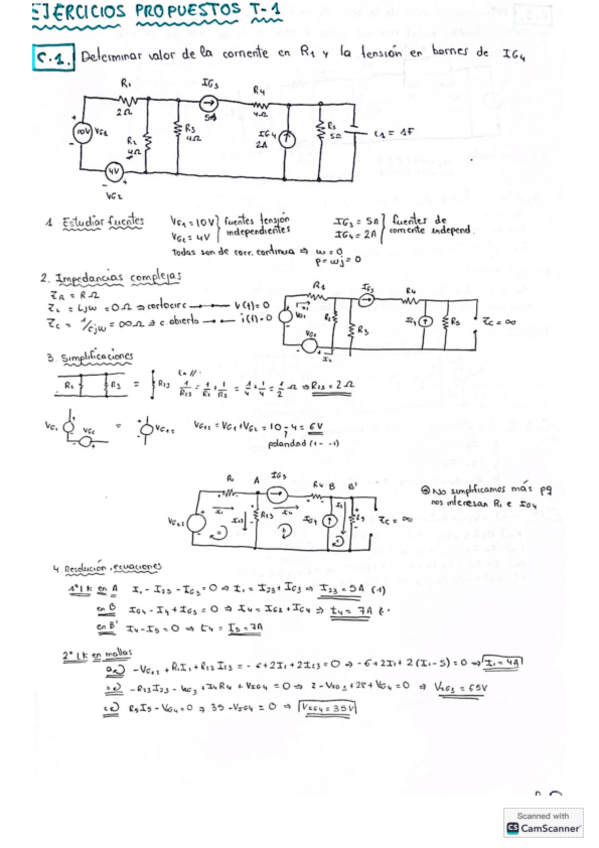 EJERCICIOS PROPUESTOS T-1
C.1. Determinar valor de la corriente en R1 y la tensión en bornes de IG4
R1 IG3 R4
2Ω 5A 4Ω
10V VG1 R2 4Ω R3 4Ω IG4 2A R5 5Ω C1 = 1F
4V
VG2
1 Estudiar fuentes VG1 = 10V } fuentes tensión IG3 = 5A } fuentes de
VG2 = 4V } independientes IG4 = 2A } corriente independ.
Todas son de corr. continua ⇒ ω = 0
p = ωj = 0
2. Impedancias complejas
ZR = R Ω
ZL = Ljω = 0Ω ⇒ cortocirc v(t) = 0
ZC = 1/cjω = ∞Ω ⇒ c. abierto i(t) = 0
R1 IG3 R4
R2 R3 R5 ZC = ∞
3. Simplificaciones
R2 R3 = R23 1/R23 = 1/R2 + 1/R3 = 1/4 + 1/4 = 1/2 Ω ⇒ R23 = 2Ω
VG1 VG2 = VG12 VG12 = VG1 + VG2 = 10 - 4 = 6V
polaridad (+ - -)
R1 A IG3 R4 B B'
R23 ZC = ∞
No simplificamos más pq
nos interesan R1 e IG4
4 Resolución, ecuaciones
1º LK en A I1 - I23 - IG3 = 0 ⇒ I1 = I23 + IG3 ⇒ I23 = 5A (1)
en B IG4 - I4 + IG3 = 0 ⇒ I4 = IG3 + IG4 ⇒ I4 = 7A
en B' I4 - I5 = 0 ⇒ I4 = I5 = 7A
2º LK en mallas
-VG12 + R1I1 + R23 I23 = -6 + 2I1 + 2I23 = 0 ⇒ -6 + 2I1 + 2(I1 - 5) = 0 ⇒ I1 = 4A
-R23 I23 - VIG3 + I4 R4 + VIG4 = 0 ⇒ 2 - VIG3 + 28 + VG4 = 0 ⇒ VIG3 = 65V
R5 I5 - VG4 = 0 ⇒ 35 - VIG4 = 0 ⇒ VIG4 = 35V
Scanned with
CS CamScanner